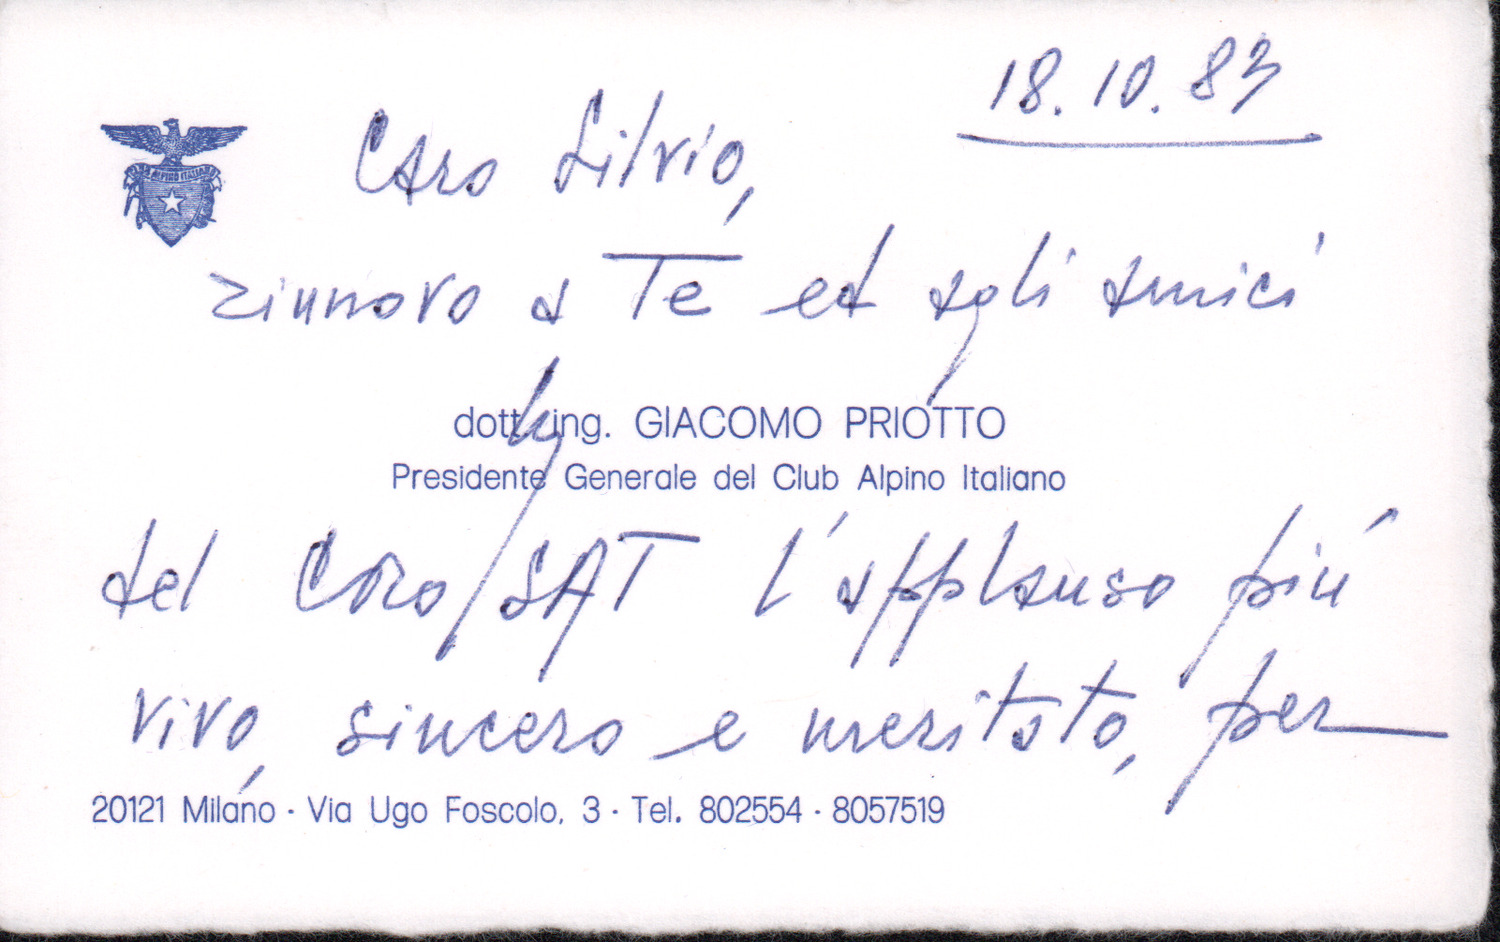 18.10.83
Caro Silvio,
ALPINO ITALIANO
rinnovo a Te ed agli amici
dott. ing. GIACOMO PRIOTTO
Presidente Generale del Club Alpino Italiano
del Coro SAT l'applauso più
vivo, sincero e meritato, per
20121 Milano · Via Ugo Foscolo, 3 · Tel. 802554 · 8057519